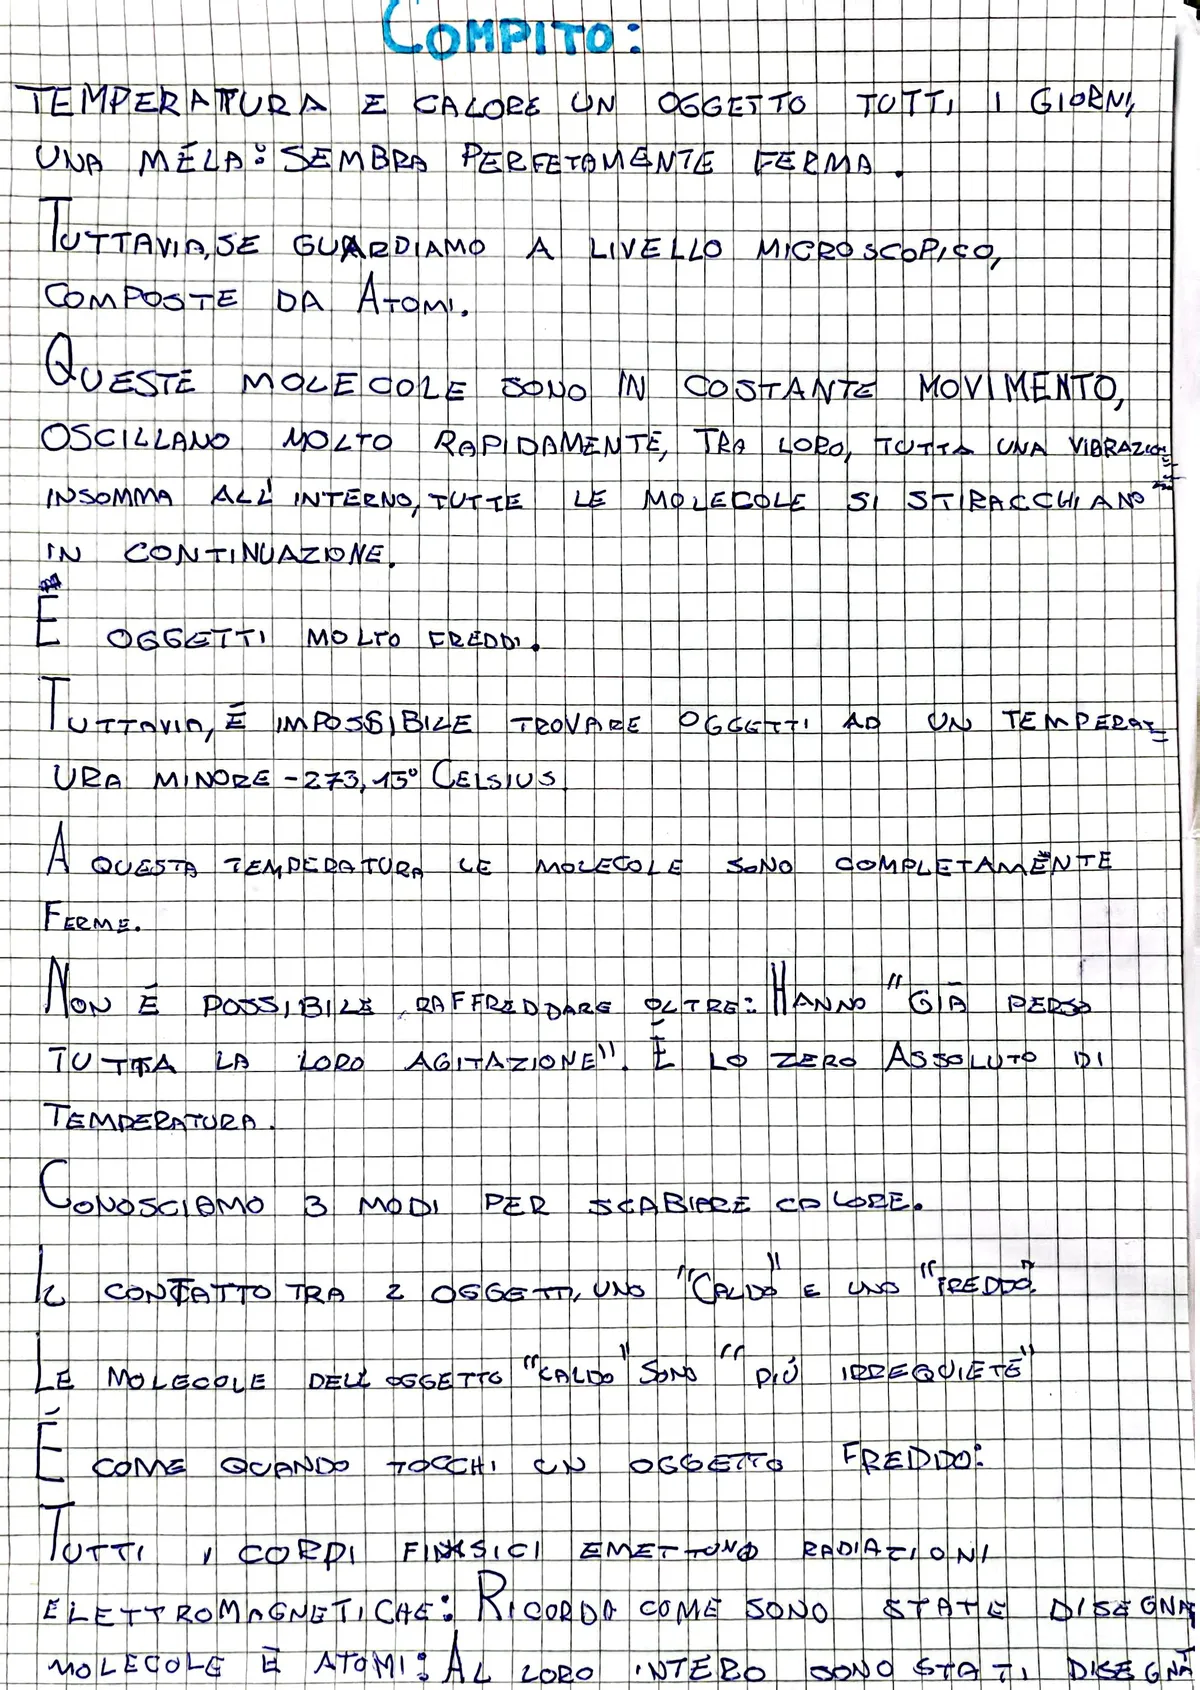 COMPITO:
TEMPERATURA E CALORE UN OGGETTO TUTTI I GIORNI,
UNA MÉLA: SEMBRA PERFETAMENTE FERMA.
TUTTAVIA, SE GUARDIAMO A LIVELLO MICROSCOPICO,
COMPOSTE DA ATOMI.
QUESTE MOLECOLE SONO IN COSTANTE MOVIMENTO,
OSCILLANO MOLTO RAPIDAMENTE, TRA LORO, TUTTA UNA VIBRAZIONE
INSOMMA ALL'INTERNO, TUTTE LE MOLECOLE SI STIRACCHIANO
IN CONTINUAZIONE.
E OGGETTI MOLTO FREDDI.
TUTTAVIA, É IMPOSSIBILE TROVARE OGGETTI AD UN TEMPERAT
URA MINORE -273,15° CELSIUS.
A QUESTA TEMPERATURA LE MOLECOLE SONO COMPLETAMENTE
FERME.
NON É POSSIBILE RAFFREDDARE OLTRE: HANNO "GIÀ PERSO
TUTTA LA LORO AGITAZIONE". É LO ZERO ASSOLUTO DI
TEMPERATURA.
CONOSCIAMO 3 MODI PER SCABIARE CALORE.
IL CONTATTO TRA 2 OGGETTI, UNO "CALDO" E UNO "FREDDO".
LE MOLECOLE DELL OGGETTO "CALDO" SONO "PIÚ IRREQUIETE"
É COME QUANDO TOCCHI UN OGGETTO FREDDO:
TUTTI I CORPI FISICI EMETTONO RADIAZIONI
ELETTROMAGNETICHE: RICORDA COME SONO STATE DISEGNA
MOLECOLE E ATOMI: AL LORO INTERO SONO STATI DISEGNAT